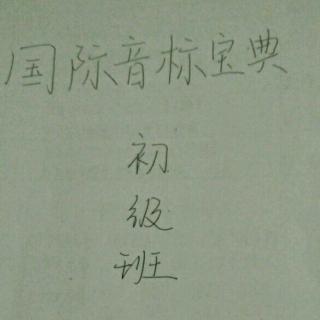 国际音标宝典
初
级
班